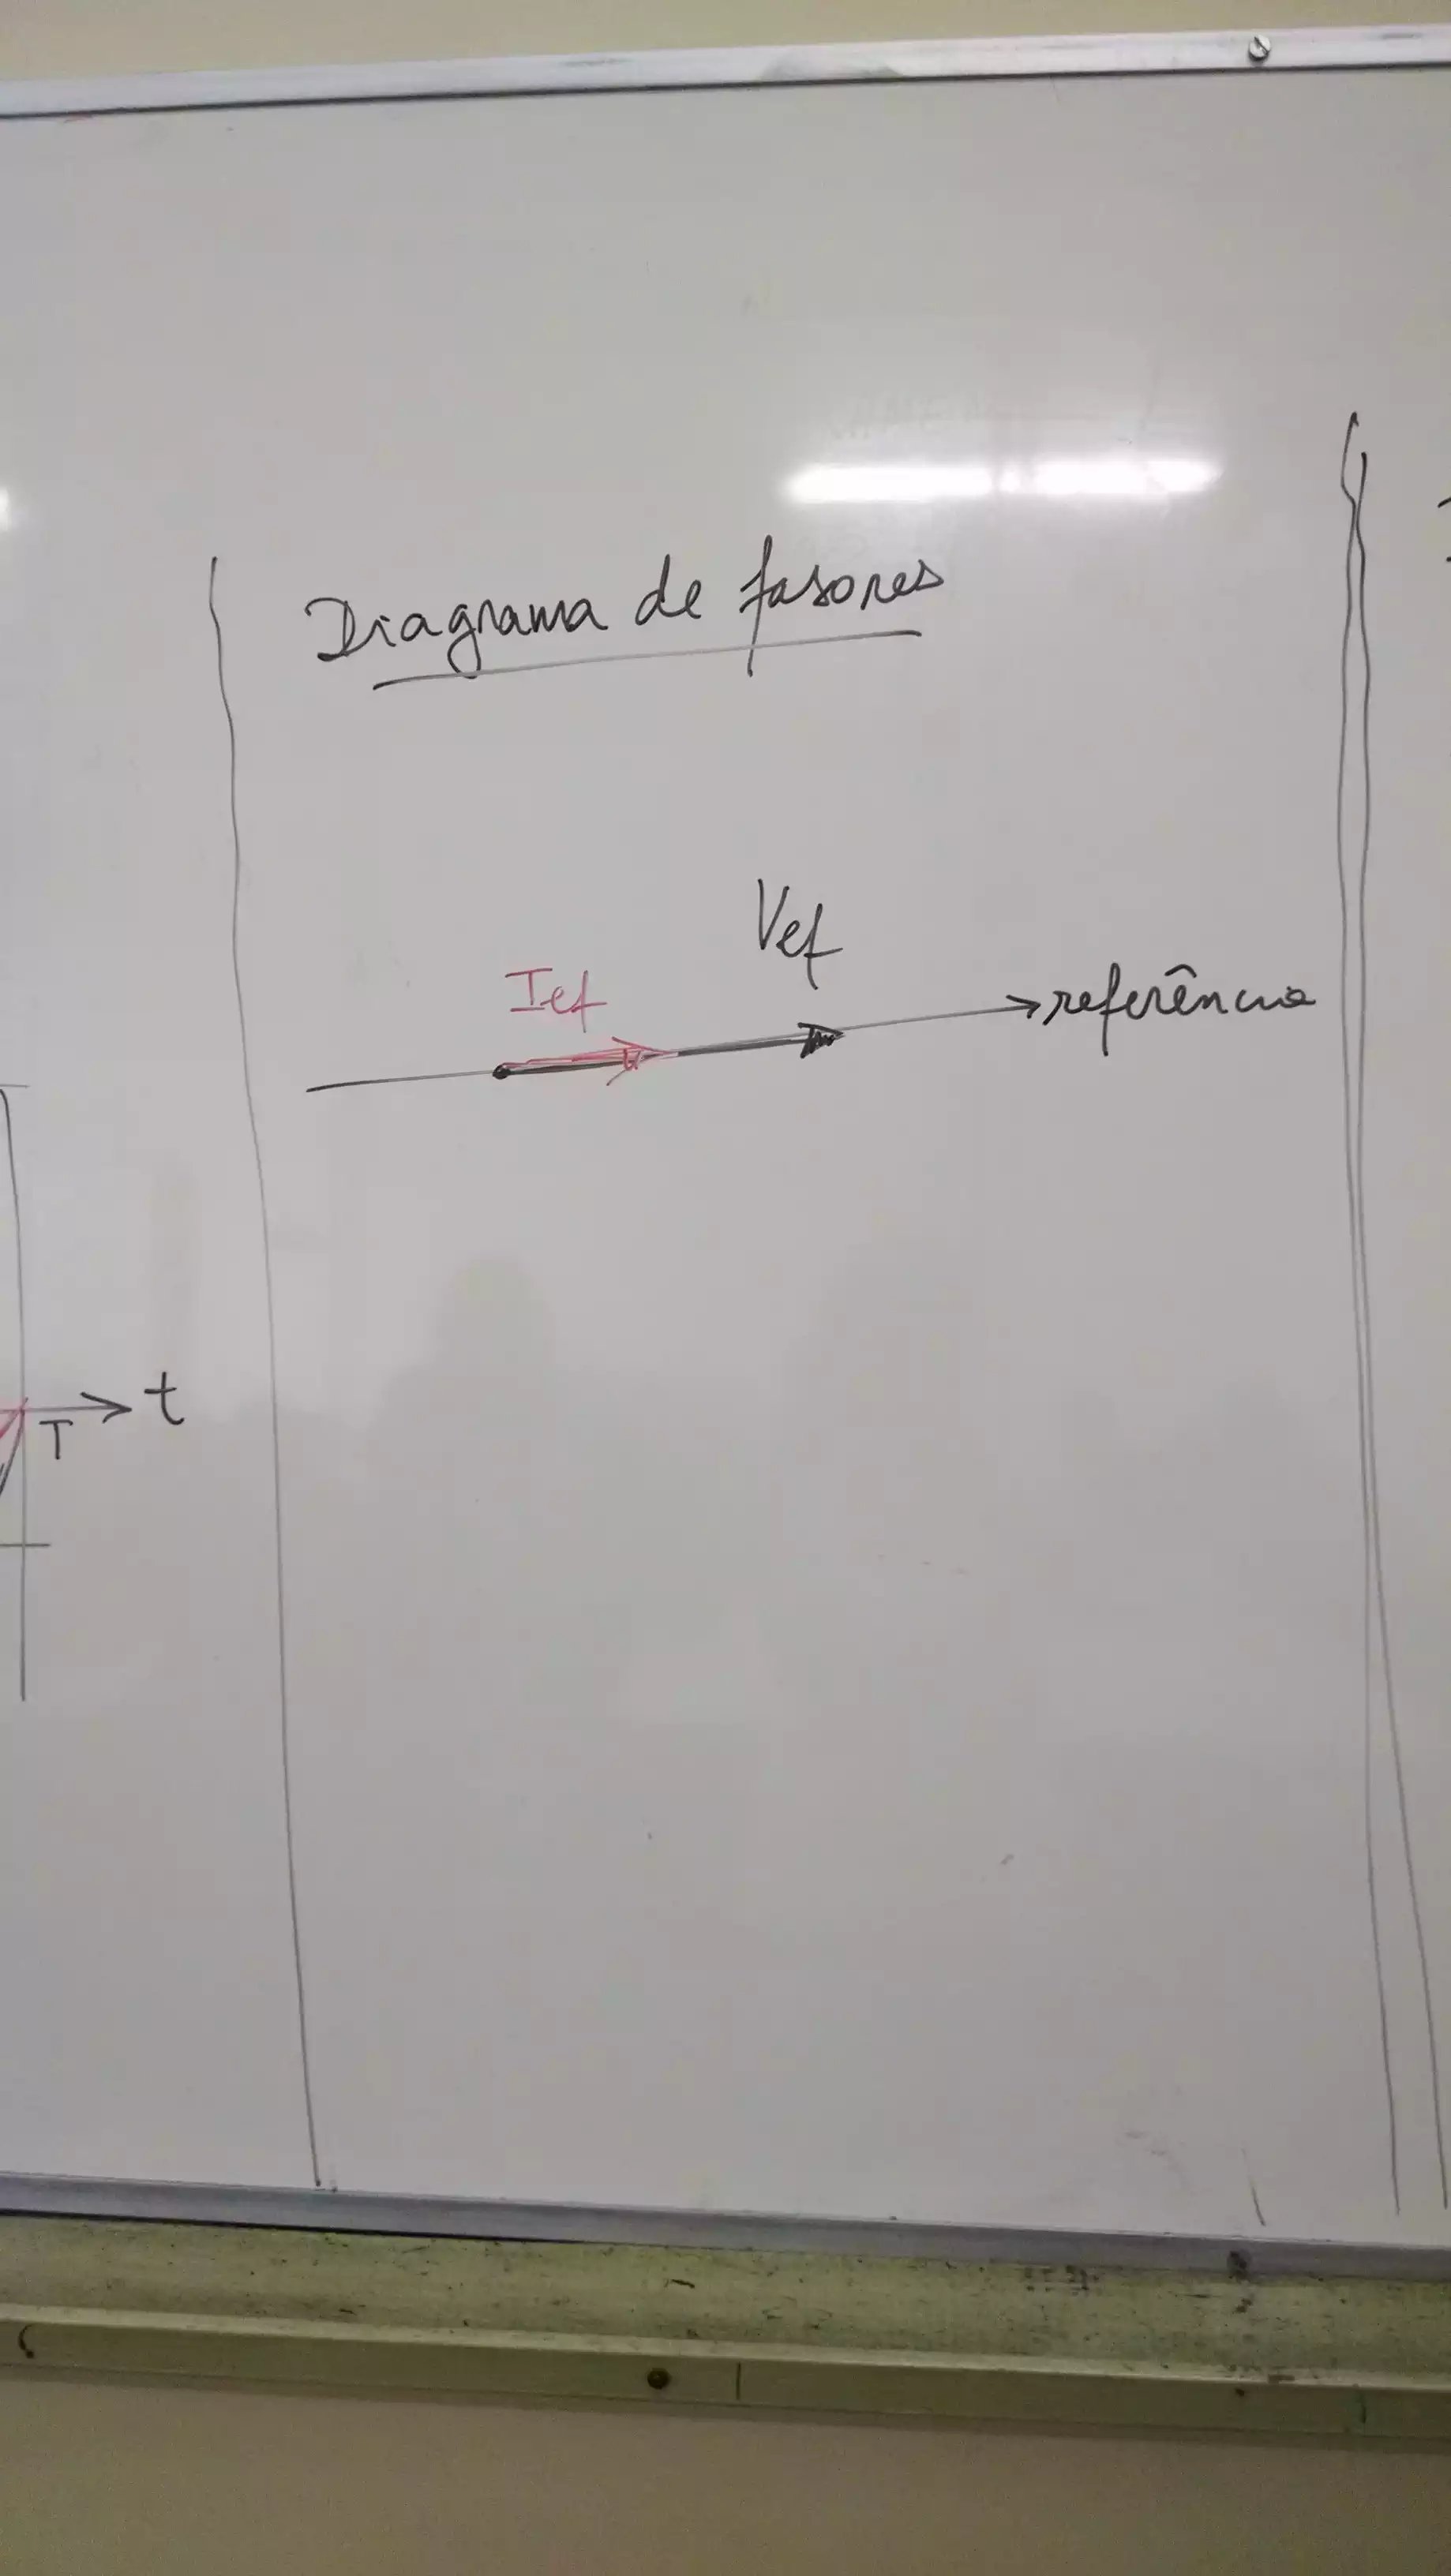 Diagrama de fasores
Vef
Ief
referência
t
T